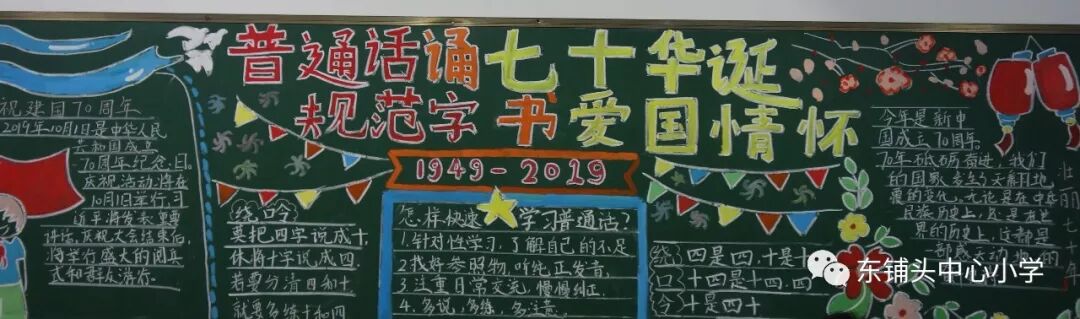 普通话诵七十华诞
规范字书爱国情怀
1949-2019
祝建国70周年
2019年10月1日是中华人民
共和国成立
70周年纪念日。
庆祝活动将在
10月1日举行,习
近平将发表重要
讲话,庆祝大会结束后,
将举行盛大的阅兵
式和群众游行
绕口令
要把四字说成十,
休将十字说成四.
若要分清四和十
就要多练十和四
怎样快速学习普通话?
1.针对性学习,了解自己的不足
2.找好参照物,听纯正发音.
3.注重日常交流,慢慢纠正.
4.多说,多练,多注意.
绕口令
四是四.十是十
十四是十四.四
十是四十
今年是新中
国成立70周年
70年砥砺奋进,我们
的国家发生了天翻地
覆的变化,无论是在中华
民族历史上,还是在世
界的历史上,这都是
一部感
东铺头中心小学